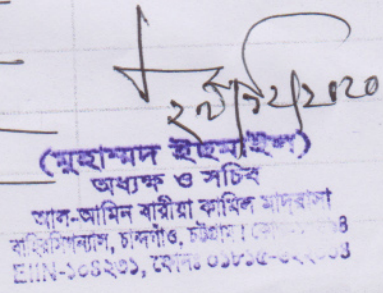 ২৯/১২/২০২০
(মুহাম্মদ ইছমাইল)
অধ্যক্ষ ও সচিব
আল-আমিন বারীয়া কামিল মাদরাসা
বাহিরসিগন্যাল, চান্দগাঁও, চট্টগ্রাম।
EIIN-১০৪২৩১, ফোনঃ